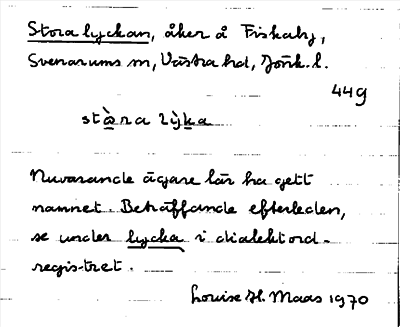 Stora lyckan, åker å Fiskaby,
Svenarums sn, Västra hd, Jönk. l.
449
stɷ̀ra lỳka
Nuvarande ägare lär ha gett
namnet. Beträffande efterleden,
se under lycka i dialektord-
registret.
Louise H. Maas 1970